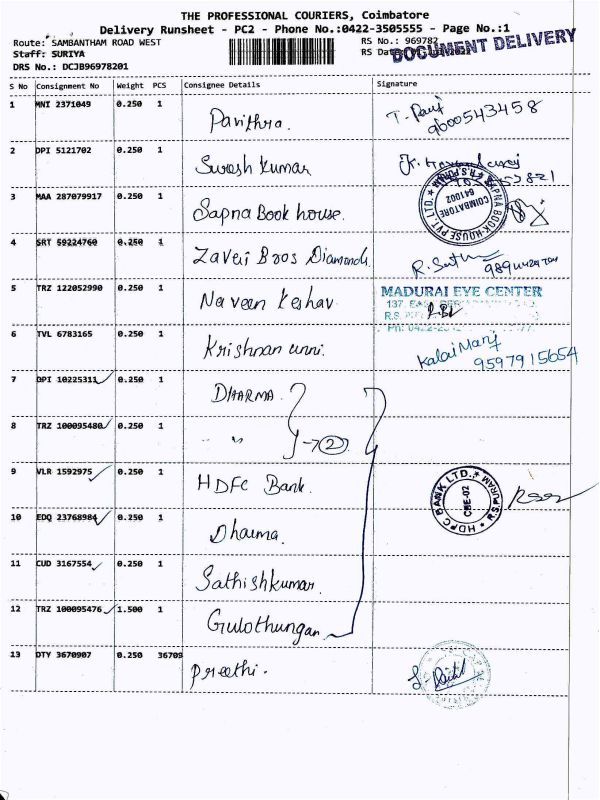 THE PROFESSIONAL COURIERS, Coimbatore
Delivery Runsheet - PC2 - Phone No.:0422-3505555 - Page No.:1
Route: SAMBANTHAM ROAD WEST RS No.: 969782
Staff: SURIYA RS Date
DOCUMENT DELIVERY
DRS No.: DCJB96978201
S No Consignment No Weight PCS Consignee Details Signature
1 MNI 2371049 0.250 1 Pavithra. T. 9600543458
2 DPI 5121702 0.250 1 Suresh Kumar
3 MAA 287079917 0.250 1 Sapna Book house. SAPNA BOOK-HOUSE PVT. LTD. R.S.PURAM COIMBATORE 641002
4 SRT 59224760 0.250 1 Zaveri Bros Diamonds R.
5 TRZ 122052990 0.250 1 Naveen Keshav MADURAI EYE CENTER
137, R.S.
6 TVL 6783165 0.250 1 Krishnan unni. Kalai Mani 9597915654
7 DPI 10225311 0.250 1 DHARMA
8 TRZ 100095480 0.250 1 " 2
9 VLR 1592975 0.250 1 HDFC Bank. HDFC BANK LTD. R.S.PURAM CBE-02
10 EDQ 23768984 0.250 1 Dharma.
11 CUD 3167554 0.250 1 Sathishkumar.
12 TRZ 100095476 1.500 1 Gulothungan
13 DTY 3670907 0.250 36709 Preethi.